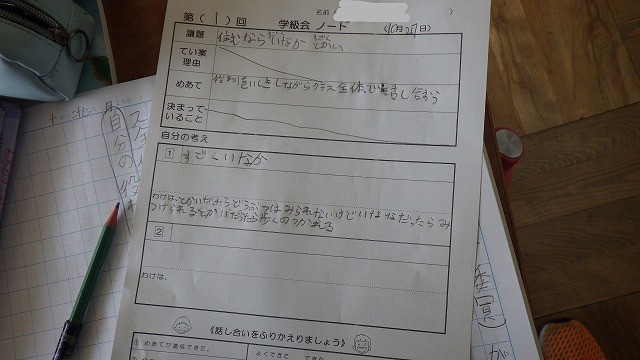 第(1)回 学級会ノート 名前( )
(10月27日)
議題 住むなら いなか とかい
てい案理由
めあて 役わりをいしきしながらクラス全体で話し合おう
決まっていること
自分の考え
1 すごくいなか
わけは、とかいだったらどうぶつはみられないけどいなかだったらみ
つけられるとかいだったら歩くのつかれる
2
わけは、
《話し合いをふりかえりましょう》
① めあてが達成できた。 よくできた できた
自分の役